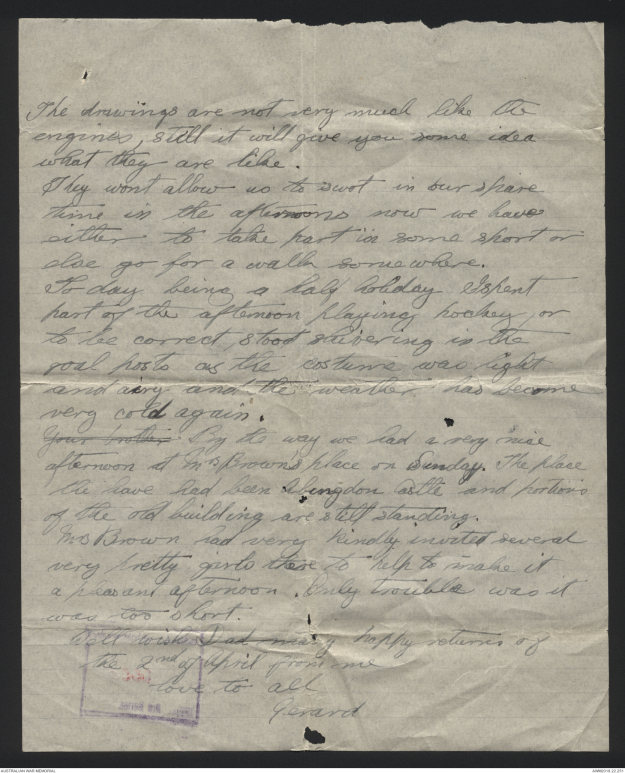 The drawings are not very much like the
engines, still it will give you some idea
what they are like.
They wont allow us to swot in our spare
time in the afternoons now we have
either to take part in some sport or
else go for a walk somewhere.
To day being a half holiday I spent
part of the afternoon playing hockey, or
to be correct, stood shivering in the
goal posts as the costume was light
and airy and the weather has become
very cold again.
Your brother By the way we had a very nice
afternoon at Mrs Brown's place on Sunday. The place
the have had been Abingdon castle and portions
of the old building are still standing.
Mrs Brown had very kindly invited several
very pretty girls there to help to make it
a pleasant afternoon. Only trouble was it
was too short.
wish Dad many happy returns of
the 2nd of April from me
love to all
Gerard
AUSTRALIAN WAR MEMORIAL